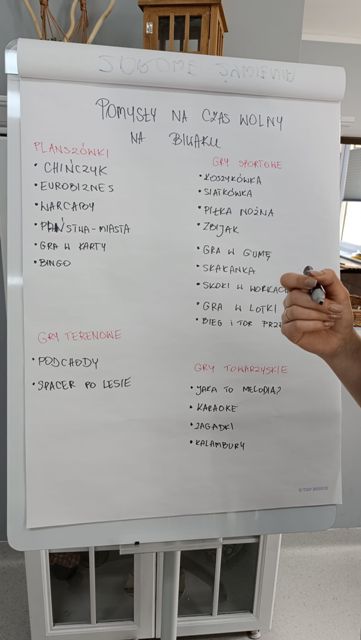 POMYSŁY NA CZAS WOLNY
NA BIWAKU
PLANSZÓWKI
• CHIŃCZYK
• EUROBIZNES
• WARCABY
• PAŃSTWA-MIASTA
• GRA W KARTY
• BINGO
GRY SPORTOWE
• KOSZYKÓWKA
• SIATKÓWKA
• PIŁKA NOŻNA
• ZBIJAK
• GRA W GUMĘ
• SKAKANKA
• SKOKI W WORKACH
• GRA W LOTKI
• BIEG I TOR
GRY TERENOWE
• PODCHODY
• SPACER PO LESIE
GRY TOWARZYSKIE
• JAKA TO MELODIA?
• KARAOKE
• ZAGADKI
• KALAMBURY